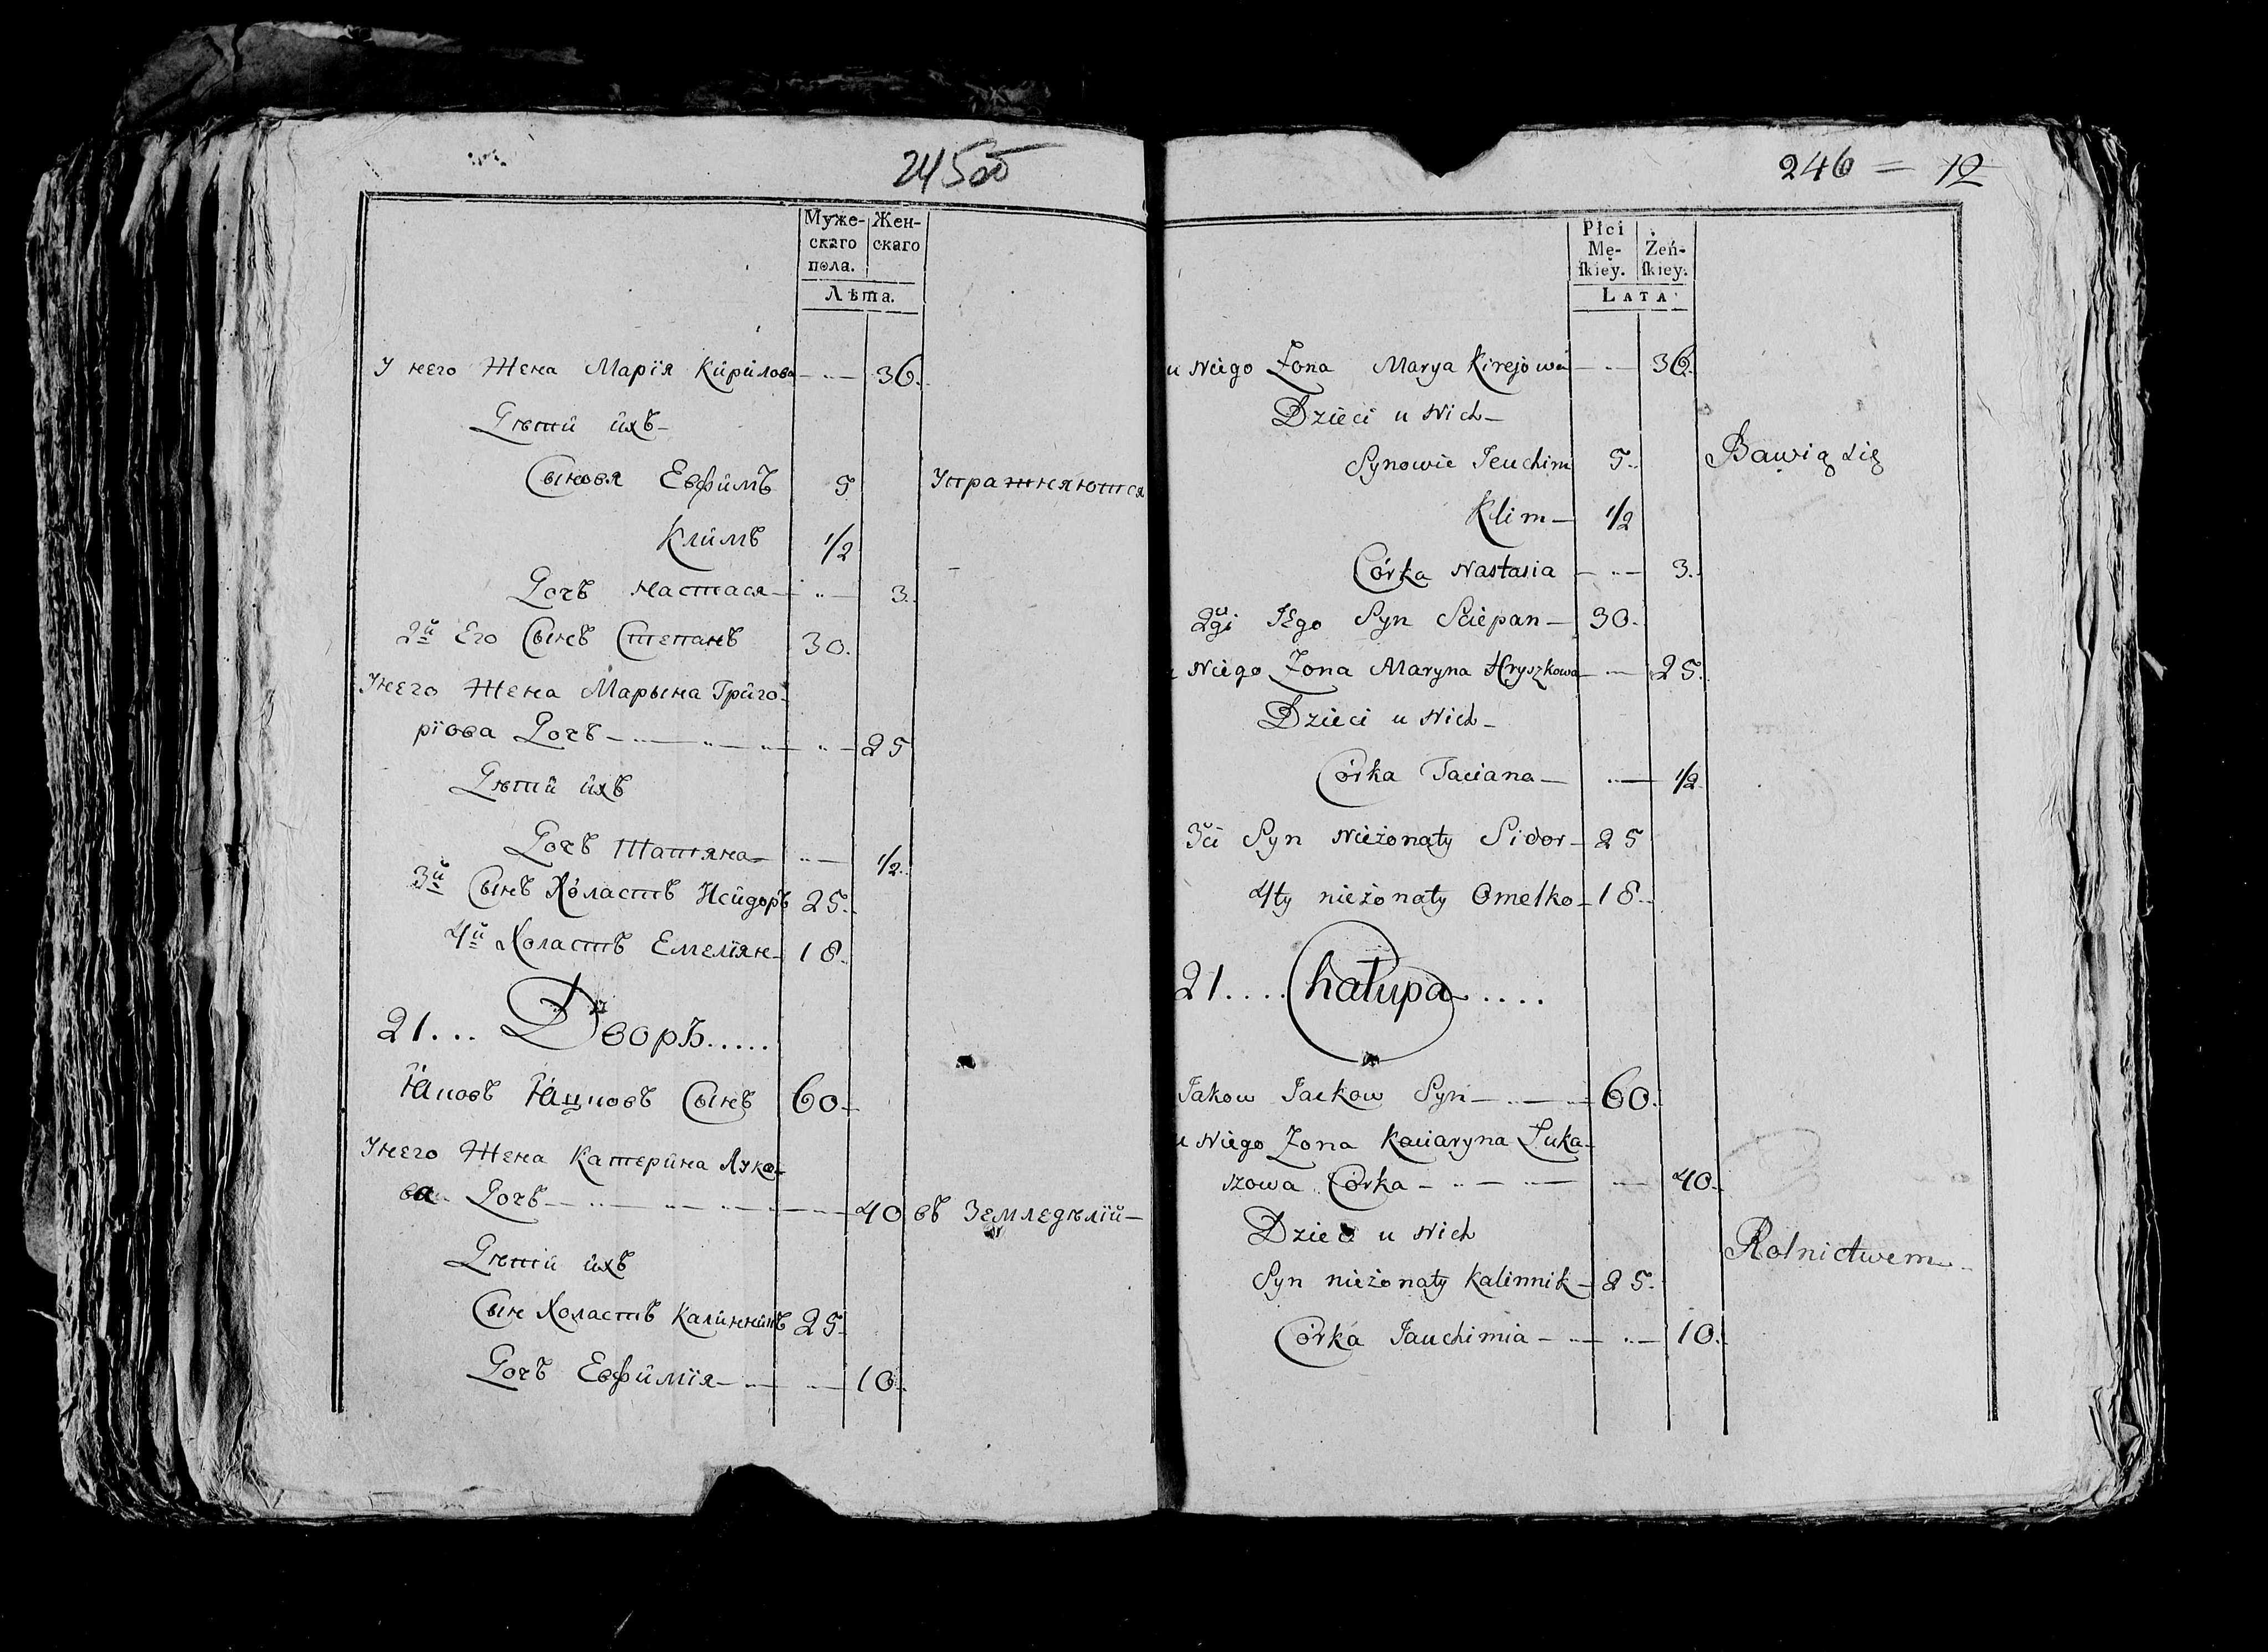 245об
Муже-
скаго
пола.
Жен-
скаго
Лѣта.
У него Жена Марїя Кирилова 36.
Дѣти ихъ
Сыновя Евфимъ 5 Упражняются
Климъ 1/2
Дочь Настася 3.
2й Его Сынъ Степанъ 30.
У него Жена Марына Григо-
рїова Дочь 25
Дѣти ихъ
Дочь Татяна 1/2.
3й Сынъ Холастъ Исидоръ 25.
4й Холастъ Емелїян 18.
21... Дворъ.....
Яковъ Яцковъ Сынъ 60.
У него Жена Катерина Лука-
ва Дочь 40 въ Земледѣлїй
Дѣти ихъ
Сын Холастъ Калинникъ 25.
Дочь Евфимїя 10.
246 = 12
Płci
Mę-
ſkiey.
Żeń-
ſkiey.
LATA
u Niego Zona Marya Kirejowa 36.
Dzieci u Nich
Synowie Jeuchim 5. Bawią się
Klim 1/2
Córka Nastasia 3.
2gi Jego Syn Sciepan 30.
u Niego Zona Maryna Hryszkowa 25.
Dzieci u Nich
Córka Taciana 1/2
3ci Syn Nieżonaty Sidor 25
4ty nieżonaty Omelko 18.
21.... Chałupa.....
Jakow Jackow Syn 60.
u Niego Zona Kaciaryna Łuka-
szowa Córka 40.
Dzieci u Nich
Rolnictwem
Syn nieżonaty Kalinnik 25.
Córka Jauchimia 10.